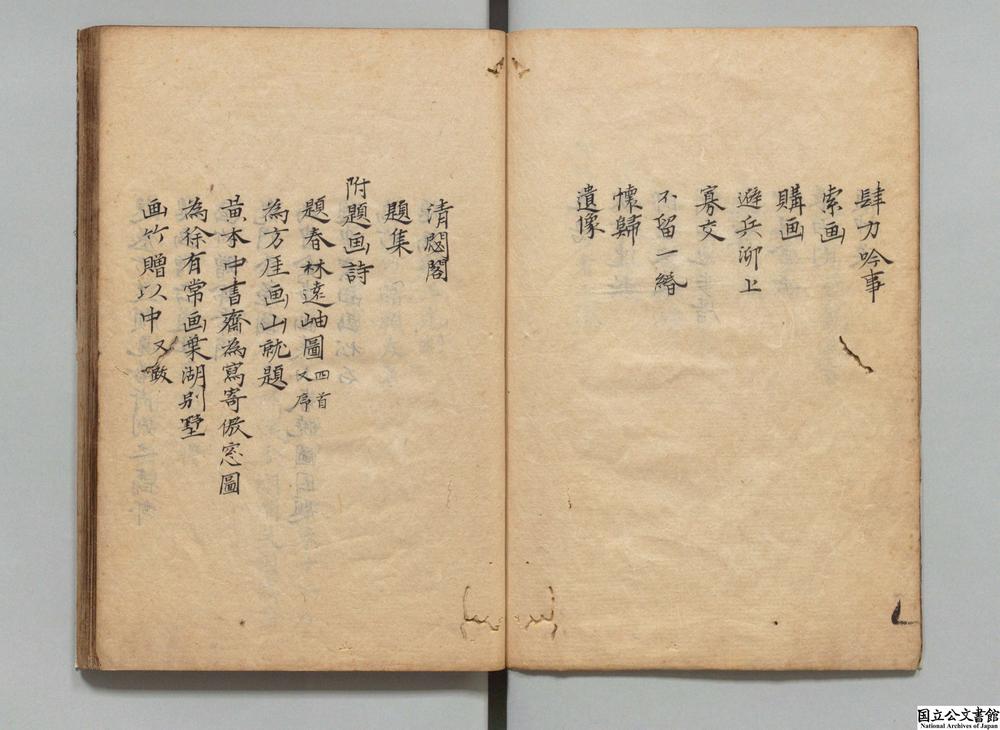 肆力吟事
索画
購画
避兵泖上
寡交
不留一緡
懷歸
遺像
清閟閣
題集
附題画詩
題春林遠岫圖 四首 又序
為方厓画山就題
黄本中書齋為寫寄傲窓圖
為徐有常画葉湖別墅
画竹贈以中 又
国立公文書館
National Archives of Japan